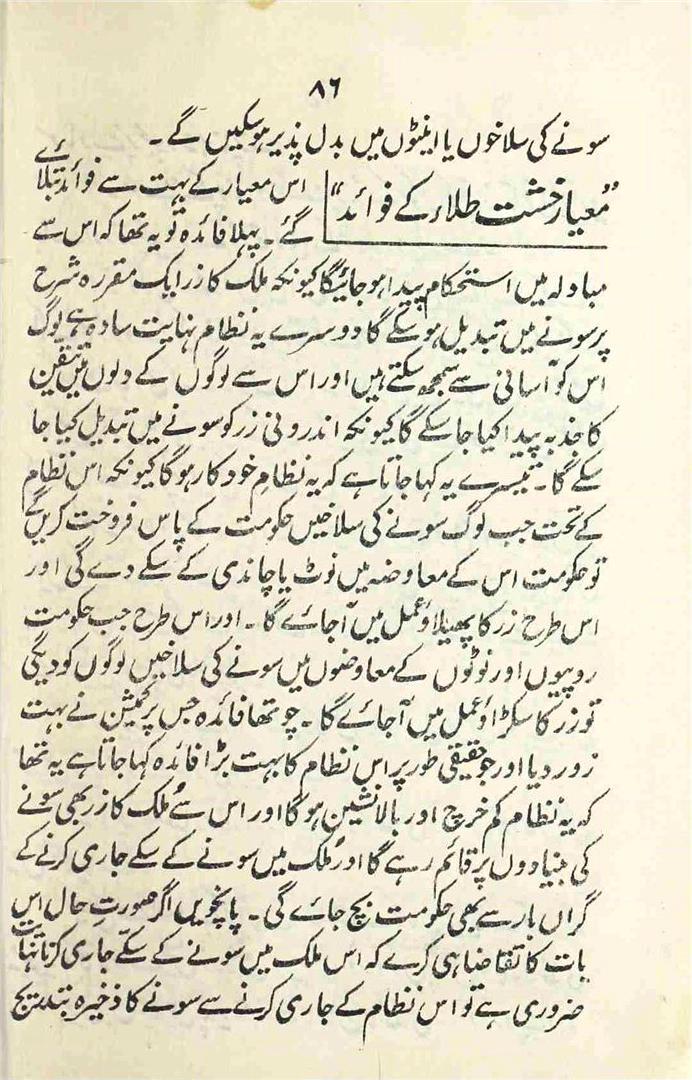 ۸۶
سونے کی سلاخوں یا اینٹوں میں بدل پذیر ہوسکیں گے۔
"معیار خشت طلاء کے فوائد"
اس معیار کے بہت سے فوائد بتلائے
گئے۔ پہلا فائدہ تو یہ تھا کہ اس سے
مبادلہ میں استحکام پیدا ہوجائیگا کیونکہ ملک کا زر ایک مقررہ شرح
پر سونے میں تبدیل ہوسکے گا دوسرے یہ نظام نہایت سادہ ہے لوگ
اس کو آسانی سے سمجھ سکتے ہیں اور اس سے لوگوں کے دلوں میں یقین
کا جذبہ پیدا کیا جاسکے گا کیونکہ اندرونی زر کو سونے میں تبدیل کیا جا
سکے گا۔ تیسرے یہ کہا جاتا ہے کہ یہ نظام خودکار ہوگا کیونکہ اس نظام
کے تحت جب لوگ سونے کی سلاخیں حکومت کے پاس فروخت کریں گے
تو حکومت اس کے معاوضہ میں نوٹ یا چاندی کے سکے دے گی اور
اس طرح زر کا پھیلاؤ عمل میں آجائے گا۔ اور اس طرح جب حکومت
روپیوں اور نوٹوں کے معاوضوں میں سونے کی سلاخیں لوگوں کو دیگی
تو زر کا سکڑاؤ عمل میں آجائے گا۔ چوتھا فائدہ جس پر کمیشن نے بہت
زور دیا اور جو حقیقی طور پر اس نظام کا بہت بڑا فائدہ کہا جاتا ہے یہ تھا
کہ یہ نظام کم خرچ اور بالانشین ہوگا اور اس سے ملک کا زر بھی سونے
کی بنیادوں پر قائم رہے گا اور ملک میں سونے کے سکے جاری کرنے کے
گراں بار سے بھی حکومت بچ جائے گی۔ پانچویں اگر صورتِ حال اس
بات کا تقاضا ہی کرے کہ اس ملک میں سونے کے سکے جاری کرنا نہایت
ضروری ہے تو اس نظام کے جاری کرنے سے سونے کا ذخیرہ بتدریج